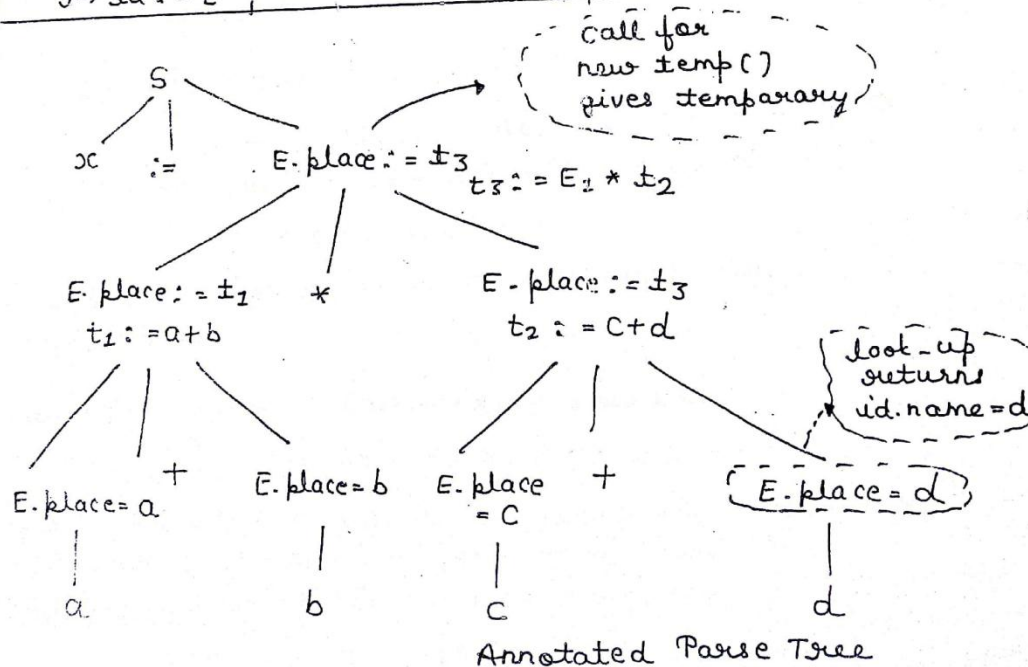 call for
new temp()
gives temparary
S
x := E.place := t3
t3 := E1 * t2
E. place := t1 * E - place := t3
t1 := a+b t2 := C+d
look-up
returns
id.name = d
E.place = a + E.place = b E. place + E.place = d
= C
a b C d
Annotated Parse Tree